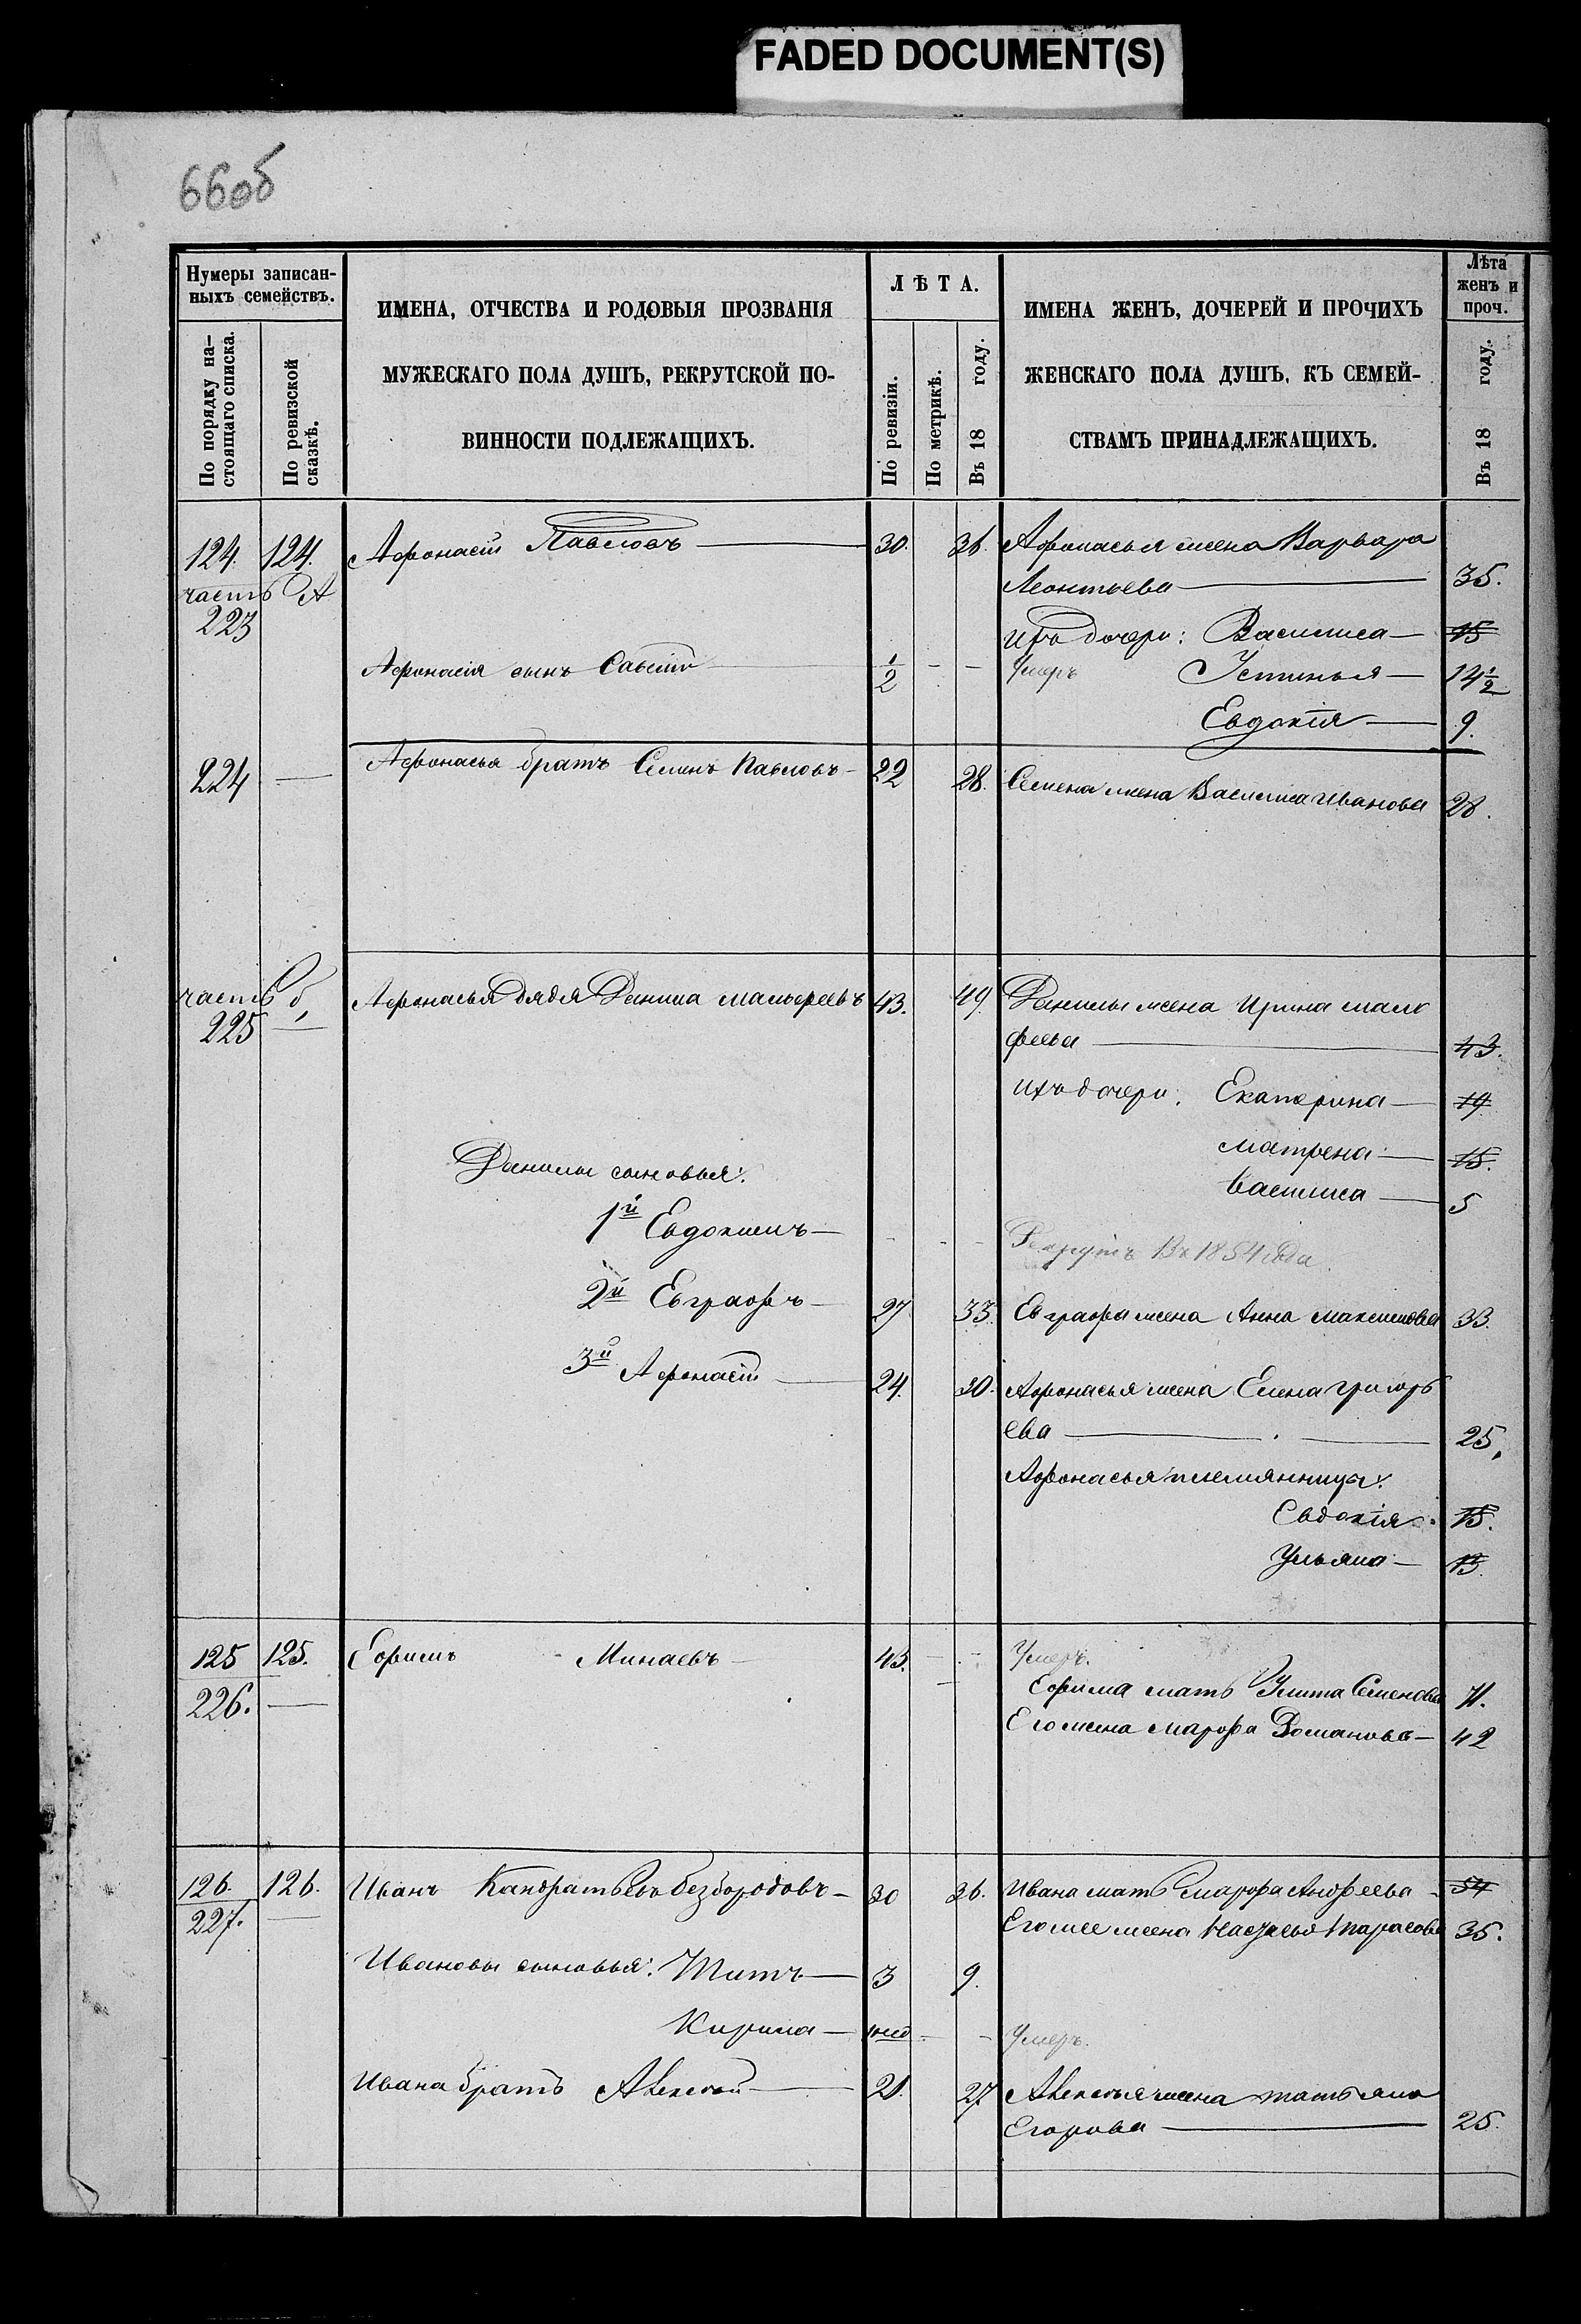 FADED DOCUMENT(S)
66об
Нумеры записан-
ныхъ семействъ.
По порядку на-
стоящаго списка.
По ревизской
сказкѣ.
ИМЕНА, ОТЧЕСТВА И РОДОВЫЯ ПРОЗВАНІЯ
МУЖЕСКАГО ПОЛА ДУШЪ, РЕКРУТСКОЙ ПО-
ВИННОСТИ ПОДЛЕЖАЩИХЪ.
ЛѢТА.
По ревизіи.
По метрикѣ.
Въ 18 году.
ИМЕНА ЖЕНЪ, ДОЧЕРЕЙ И ПРОЧИХЪ
ЖЕНСКАГО ПОЛА ДУШЪ, КЪ СЕМЕЙ-
СТВАМЪ ПРИНАДЛЕЖАЩИХЪ.
Лѣта
женъ и
проч.
Въ 18 году.
124. 124. Афонасій Павловъ 30. 36. Афонасья жена Варвара
часть А Леонтьева 35.
223
Ихъ дочери: Василиса 15
Афонасія сынъ Савелій 1/2 - - Умеръ Устинья 14 1/2
Евдокія 9.
224 — Афонасья братъ Семенъ Павловъ 22 28. Семена жена Василиса Иванова 28.
часть б, Афонасья дядя Данила малофеевъ 43. 49. Данилы жена Ирина мало
225 — феева 43.
Ихъ дочери: Екатерина 19
Матрена 15.
Данилы сыновья: Василиса 5
1й Евдокимъ - - - Рекрутъ Въ 1854 года
2й Евграфъ 27 33. Евграфа жена Анна Максимова 33.
3й Афонасій 24. 30. Афонасья жена Елена григорь
ева 25.
Афонасья племянницы:
Евдокія 15.
Ульяна 13.
125 125. Ефимъ Минаевъ 45. - - Умеръ.
226. — Ефима мать Улита Семенова 71.
Его жена марфа Романова 42
126. 126. Иванъ Кандратьевъ Безбородовъ 30 36. Ивана мать марфа Андреева 54
227. — Его же жена Настасья Тарасова 35.
Ивановы сыновья: Титъ 3 9.
Кирила - - Умеръ.
Ивана братъ Алексей 21. 27 Алексея жена татьяна
Егорова 25.